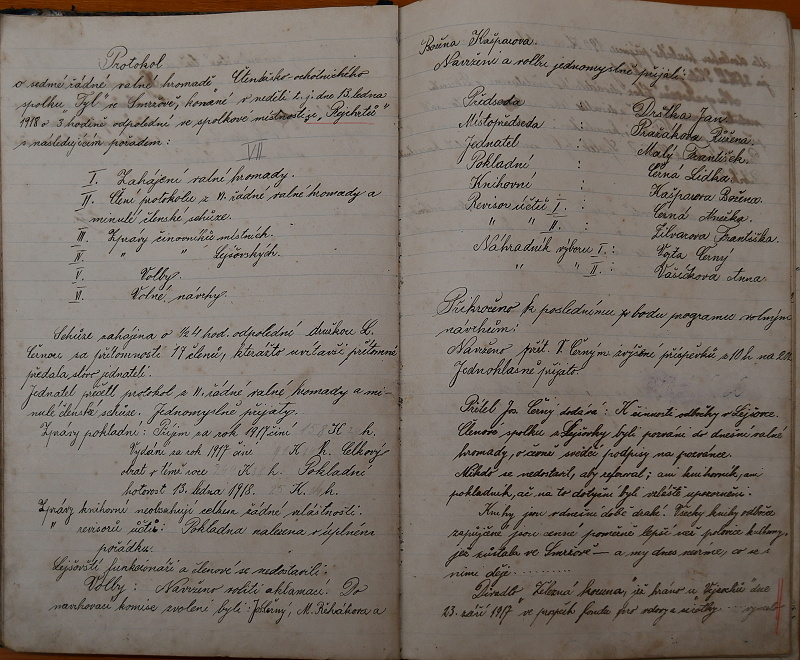 Protokol
o sedmé řádné valné hromadě Čtenářsko-ochotnického
spolku "Tyl" ve Smržově, konané v neděli t. j. dne 13. ledna
1918 o 3 hodině odpolední ve spolkové místnosti "u Rejchrtů"
s následujícím pořadem:
VII
I. Zahájení valné hromady.
II. Čtení protokolu z VI. řádné valné hromady a
minulé členské schůze.
III. Zprávy činovníků místních.
IV. " " Lejšovských.
V. Volby.
VI. Volné návrhy.
Schůze zahájena o ½4 hod. odpolední družkou L.
Černou za přítomnosti 17 členů, kterážto uvítavši přítomné
předala slovo jednateli.
Jednatel přečtl protokol z VI. řádné valné hromady a mi-
nulé členské schůze. Jednomyslně přijaty.
Zprávy pokladní: Příjem za rok 1917 činí K h.
Vydání za rok 1917 činí K h. Celkový
obrat v tímž roce K h. Pokladní
hotovost 13. ledna 1918. K h.
Zprávy knihovní neobsahují celkem žádné zvláštnosti.
" revisorů účtů: Pokladna nalezena v úplném
pořádku.
Lejšovští funkcionáři a členové se nedostavili.
Volby: Navrženo voliti aklamací. Do
navrhovací komise zvoleni byli: Jos. Černý, M. Řihákova a
Božena Kašparova.
Navrženi a volbu jednomyslně přijali:
Předseda : Drštka Jan
Místopředseda : Pražákova Růžena.
Jednatel : Malý František.
Pokladní : Černá Lidka
Knihovní : Kašparova Božena.
Revisor účtů I. : Černá Anežka.
" " II. : Zilvarova Františka.
Náhradník výboru I. : Vojta Černý
" " II. : Vašíčkova Anna.
Přikročeno k poslednímu bodu programu volným
návrhům:
Navrženo přít. V. Černým zvýšení příspěvků z 10 h na 20 h.
Jednohlasně přijato.
Přítel Jos. Černý dodává: K činnosti odbočky v Lejšovce.
Členové spolku z Lejšovky byli pozváni do dnešní valné
hromady, o čemž svědčí podpisy na pozvánce.
Nikdo se nedostavil, aby referoval; ani knihovník, ani
pokladník, ač na to dotyční byli zvláště upozorněni.
Knihy jsou v dnešní době drahé. Všechy knihy odbočce
zapůjčené jsou cenné poměrně lepší než polovice knihovny,
jež zůstala ve Smržově — a my dnes nevíme, co se s
nimi děje.........
Divadlo "Železná koruna," jež hráno u Vejrochů dne
23. září 1917 ve prospěch fondu pro vdovy a sirotky